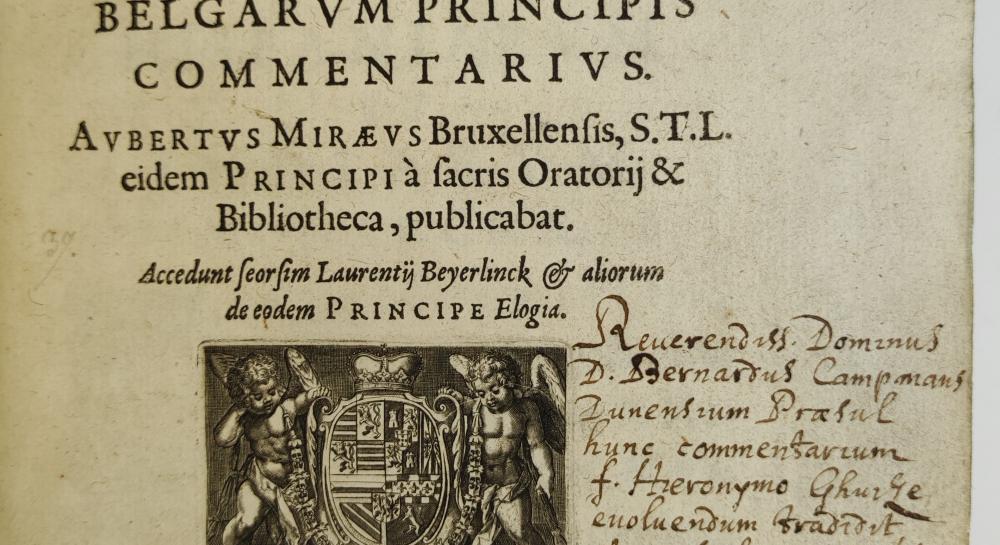 BELGARVM PRINCIPIS
COMMENTARIVS.
AVBERTVS MIRÆVS Bruxellenſis, S.T.L.
eidem PRINCIPI à ſacris Oratorij &
Bibliotheca, publicabat.
Accedunt ſeorſim Laurentij Beyerlinck & aliorum
de eodem PRINCIPE Elogia.
Reuerendiss. Dominus
D. Bernardus Campmans
Dunensium Præsul
hunc commentarium
f. Hieronymo
euoluendum tradidit